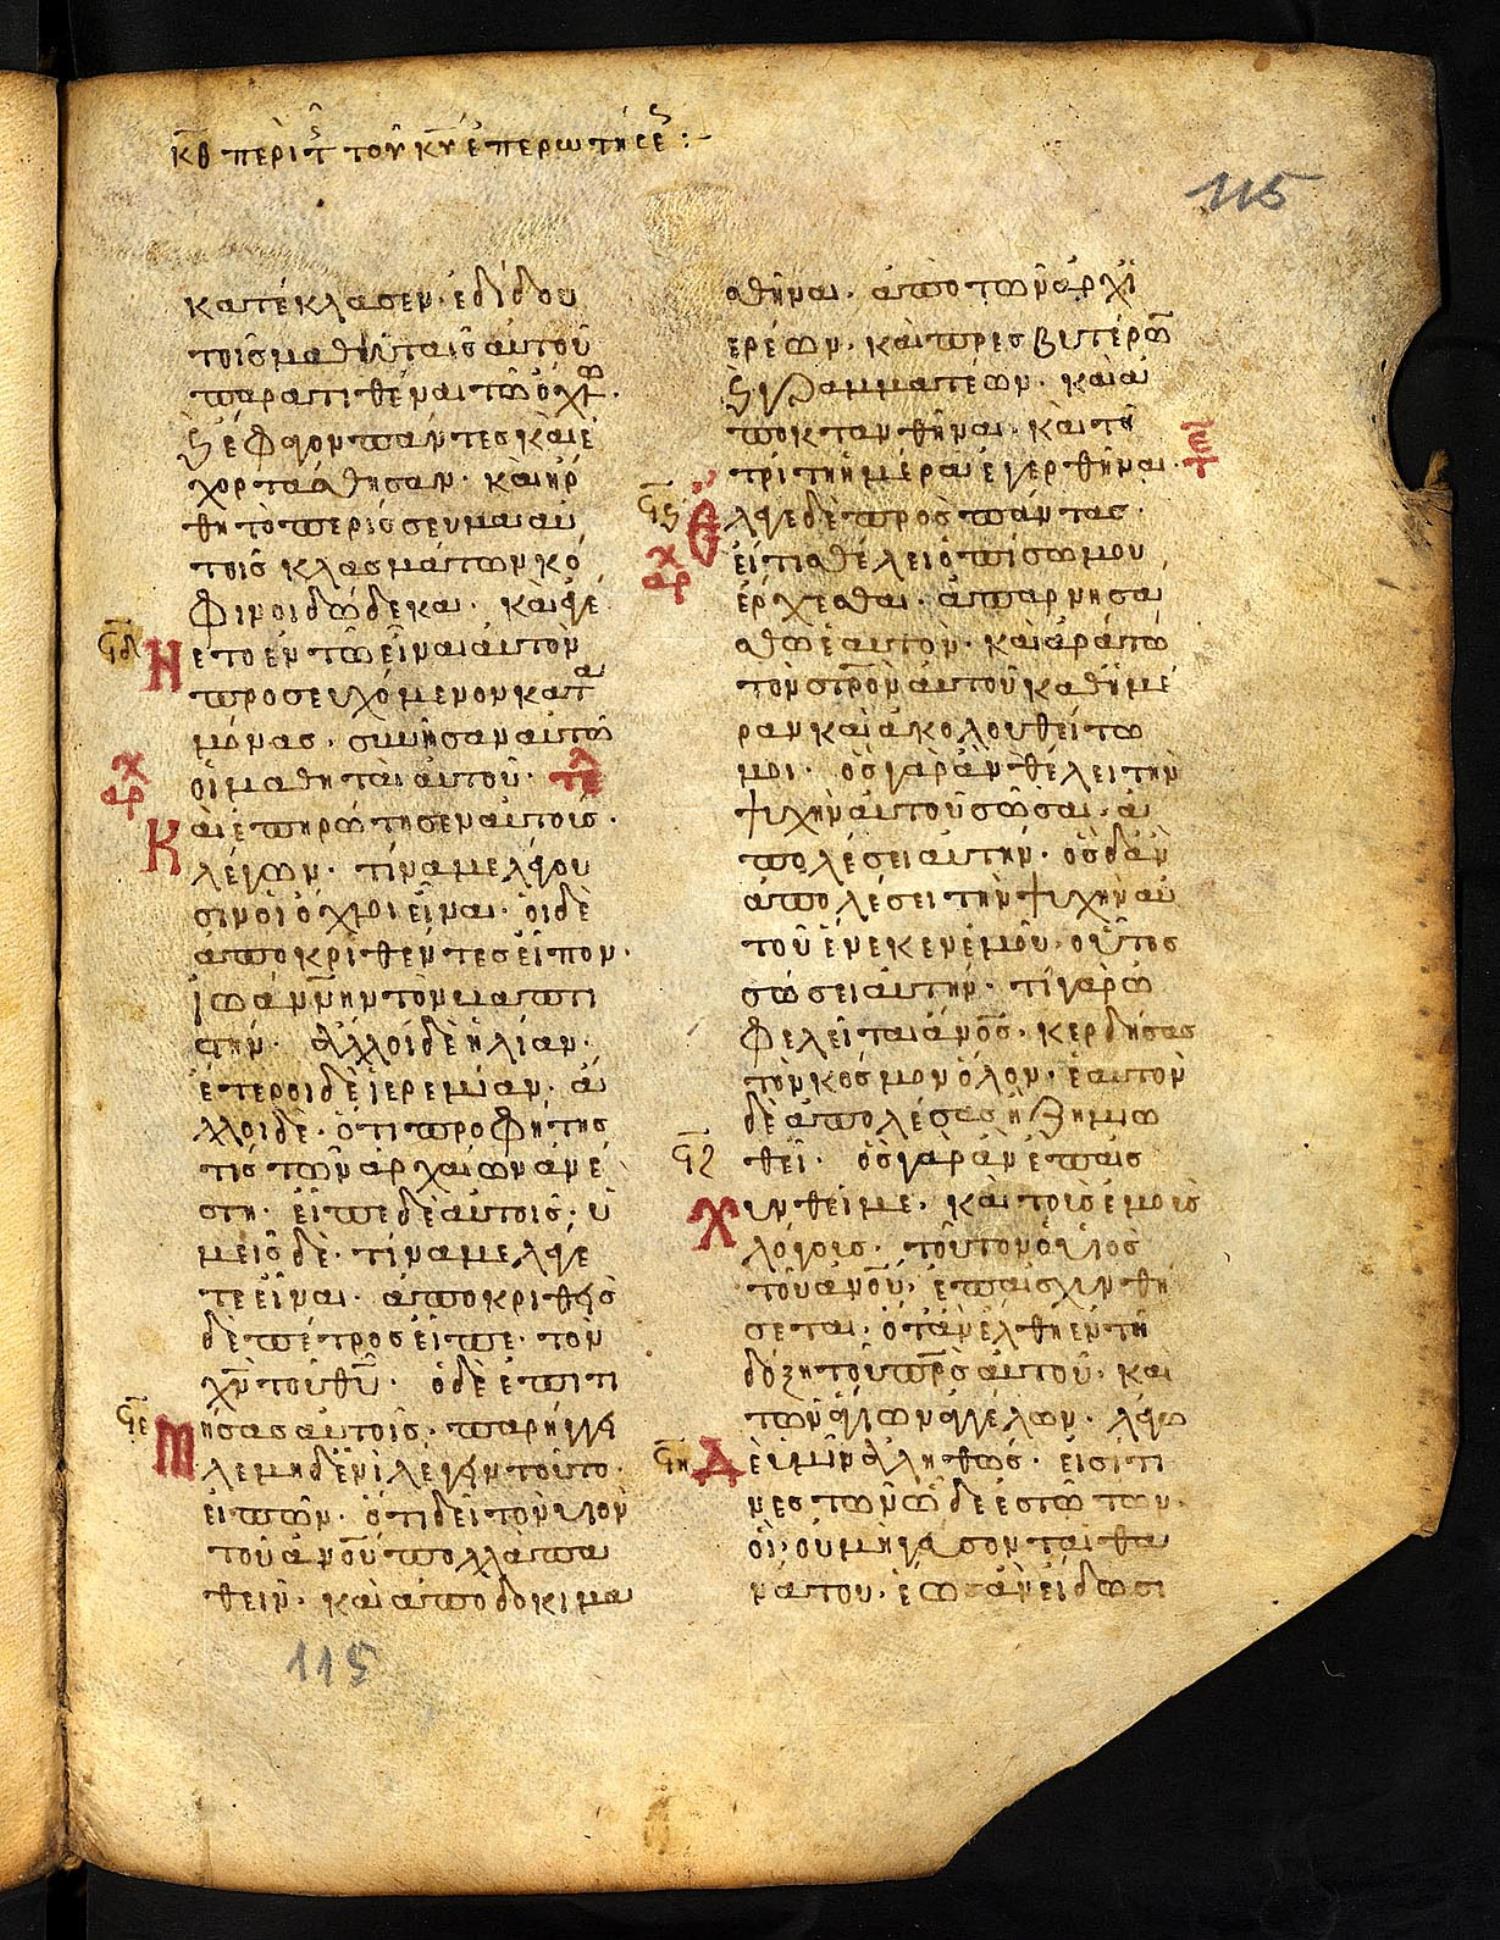 κθ περὶ τ τοῦ κυ ἐπερωτήσε :-
115
κατέκλασεν· ἐδίδου
τοῖς μαθηταῖς αὐτοῦ
παρατιθέναι τῶ ὄχλ·
ϛ ἔφαγον πάντες καὶ ἐ
χορτάσθησαν· καὶ ἤρ
θη τὸ περίσσευμα αὐ
τοῖς κλασμάτων κό
φινοι δώδεκα· καὶ ἐγέ
ϟδ
Νετο ἐν τῶ εἶναι αὐτὸν
προσευχόμενον κατα
μόνας· συνῆσαν αὐτῶ
οἱ μαθηταὶ αὐτοῦ· τε
αρχ
Καὶ ἐπηρώτησεν αὐτοὺς·
λέγων· τίνα με λέγου
σιν οἱ ὄχλοι εἶναι· οἱ δὲ
ἀποκριθέντες εἶπον·
ἰωάννην τὸν βαπτι
στήν· ἄλλοι δὲ ἠλίαν·
ἕτεροι δὲ ἱερεμίαν· ἄ
λλοι δὲ· ὅτι προφήτης
τὶς τῶν ἀρχαίων ἀνέ
στη· εἶπε δὲ αὐτοῖς· ὑ
μεῖς δὲ· τίνα με λέγε
τε εἶναι· ἀποκριθεὶς
δὲ πέτρος εἶπε· τὸν
χν τοῦ θυ· ὁ δὲ ἐπιτι
ϟε
Μήσας αὐτοῖς· παρήγγει
λε μηδενὶ λέγειν τοῦτο·
εἰπὼν· ὅτι δεῖ τὸν υἱὸν
τοῦ ανου πολλὰ πα
θεῖν· καὶ ἀποδοκιμα
115
σθῆναι· ἀπὸ τῶν ἀρχι
ερέων· καὶ πρεσβυτέρω
ϛ γραμματέων· καὶ ἀ
ποκτανθῆναι· καὶ τῆ
τρίτη ἡμέρα ἐγερθῆναι·
ϟϛ
αρχ
Ἔλεγε δὲ πρὸς πάντας·
εἴ τις θέλει ὀπίσω μου
ἔρχεσθαι· ἀπαρνησά
σθω ἑαυτὸν· καὶ ἀράτω
τὸν στρον αὐτοῦ καθ ἡμέ
ραν καὶ ἀκολουθείτω
μοι· ὃς γὰρ ἂν θέλει τὴν
ψυχὴν αὐτοῦ σῶσαι· ἀ
πολέσει αὐτήν· ὃς δ ἂν
ἀπολέσει τὴν ψυχὴν αὐ
τοῦ ἕνεκεν ἐμοῦ· οὗτος
σώσει αὐτήν· τί γὰρ ὠ
φελεῖται ανος· κερδήσας
τὸν κόσμον ὅλον· ἑαυτὸν
δὲ ἀπολέσας ἢ ζημιω
ϟζ
θεὶ· ὃς γὰρ ἂν ἐπαις
Χυνθεί με· καὶ τοὺς ἐμοὺς
λόγους· τοῦτον ὁ υἱὸς
τοῦ ανου· ἐπαισχυνθή
σεται· ὅταν ἔλθη ἐν τῆ
δόξη τοῦ προς αὐτοῦ· καὶ
τῶν ἁγίων ἀγγέλων· λέγω
ϟη
Δὲ ὑμῖν ἀληθῶς· εἰσί τι
νες τῶν ὧδε ἑστώτων·
οἳ οὐ μὴ γεύσονται θα
νάτου· ἕως ἂν εἴδωσι